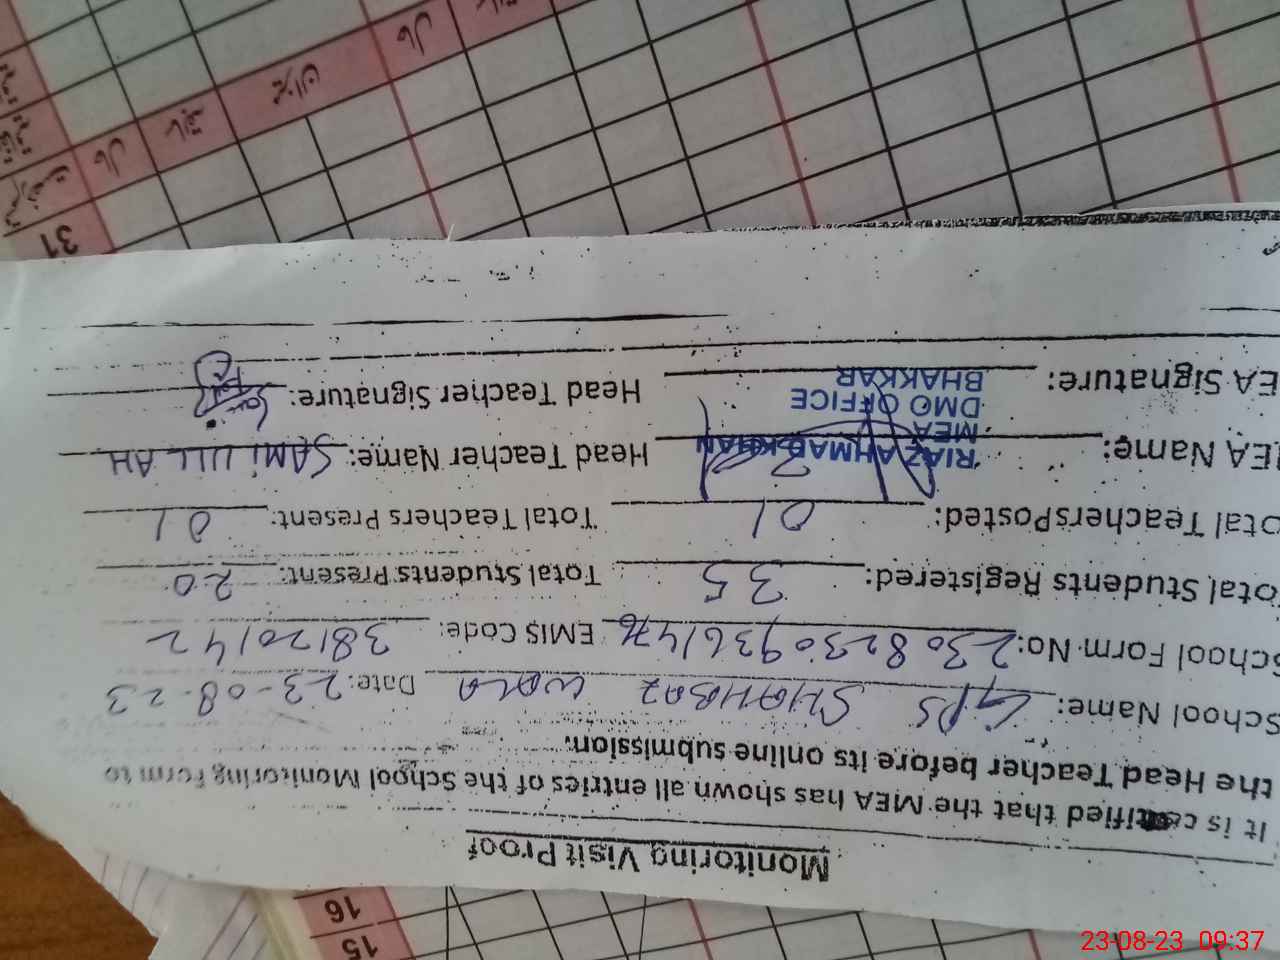 Monitoring Visit Proof
It is certified that the MEA has shown all entries of the School Monitoring Form to
the Head Teacher before its online submission.
School Name: GPS SHAHBAZ WALA Date: 23-08-23
School Form No: 23082309361476 EMIS Code: 38120142
Total Students Registered: 35 Total Students Present: 20
Total Teachers Posted: 01 Total Teachers Present: 01
MEA Name: RIAZ AHMAD KHAN Head Teacher Name: SAMI ULLAH
MEA
DMO OFFICE
EA Signature: BHAKKAR Head Teacher Signature:
31
16
15
23-08-23 09:37